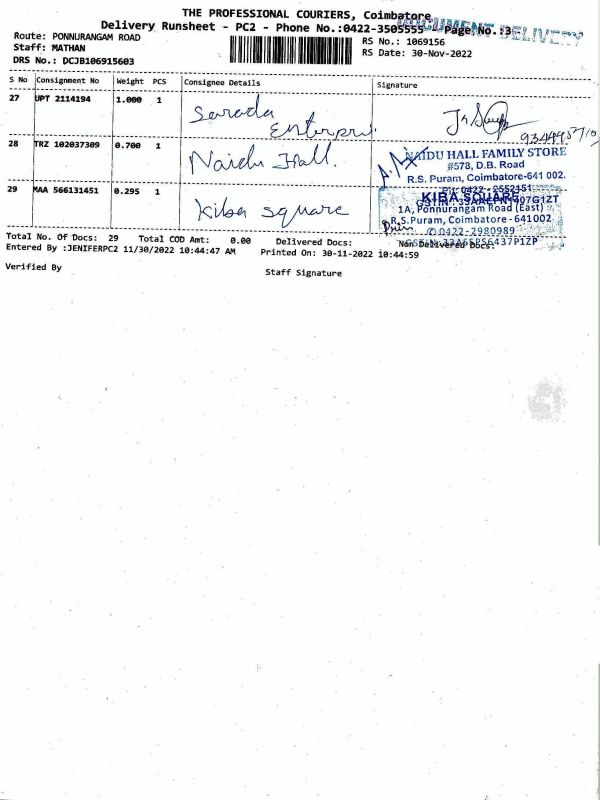 THE PROFESSIONAL COURIERS, Coimbatore
DOCUMENT DELIVERY
Delivery Runsheet - PC2 - Phone No.:0422-3505555 - Page No.:3
Route: PONNURANGAM ROAD
RS No.: 1069156
Staff: MATHAN
RS Date: 30-Nov-2022
DRS No.: DCJB106915603
S No Consignment No Weight PCS Consignee Details Signature
27 UPT 2114194 1.000 1 Sarada
Enterpri
28 TRZ 102037309 0.700 1 Naidu Hall.
NAIDU HALL FAMILY STORE
#578, D.B. Road
R.S. Puram, Coimbatore-641 002.
PH: 0422 - 2552151
29 MAA 566131451 0.295 1 Kiba square
KIBA SQUARE
1A, Ponnurangam Road (East)
R.S.Puram, Coimbatore - 641002
✆ 0422-2980989
Total No. Of Docs: 29 Total COD Amt: 0.00 Delivered Docs: Non Delivered Docs:
Entered By :JENIFERPC2 11/30/2022 10:44:47 AM Printed On: 30-11-2022 10:44:59
Verified By
Staff Signature